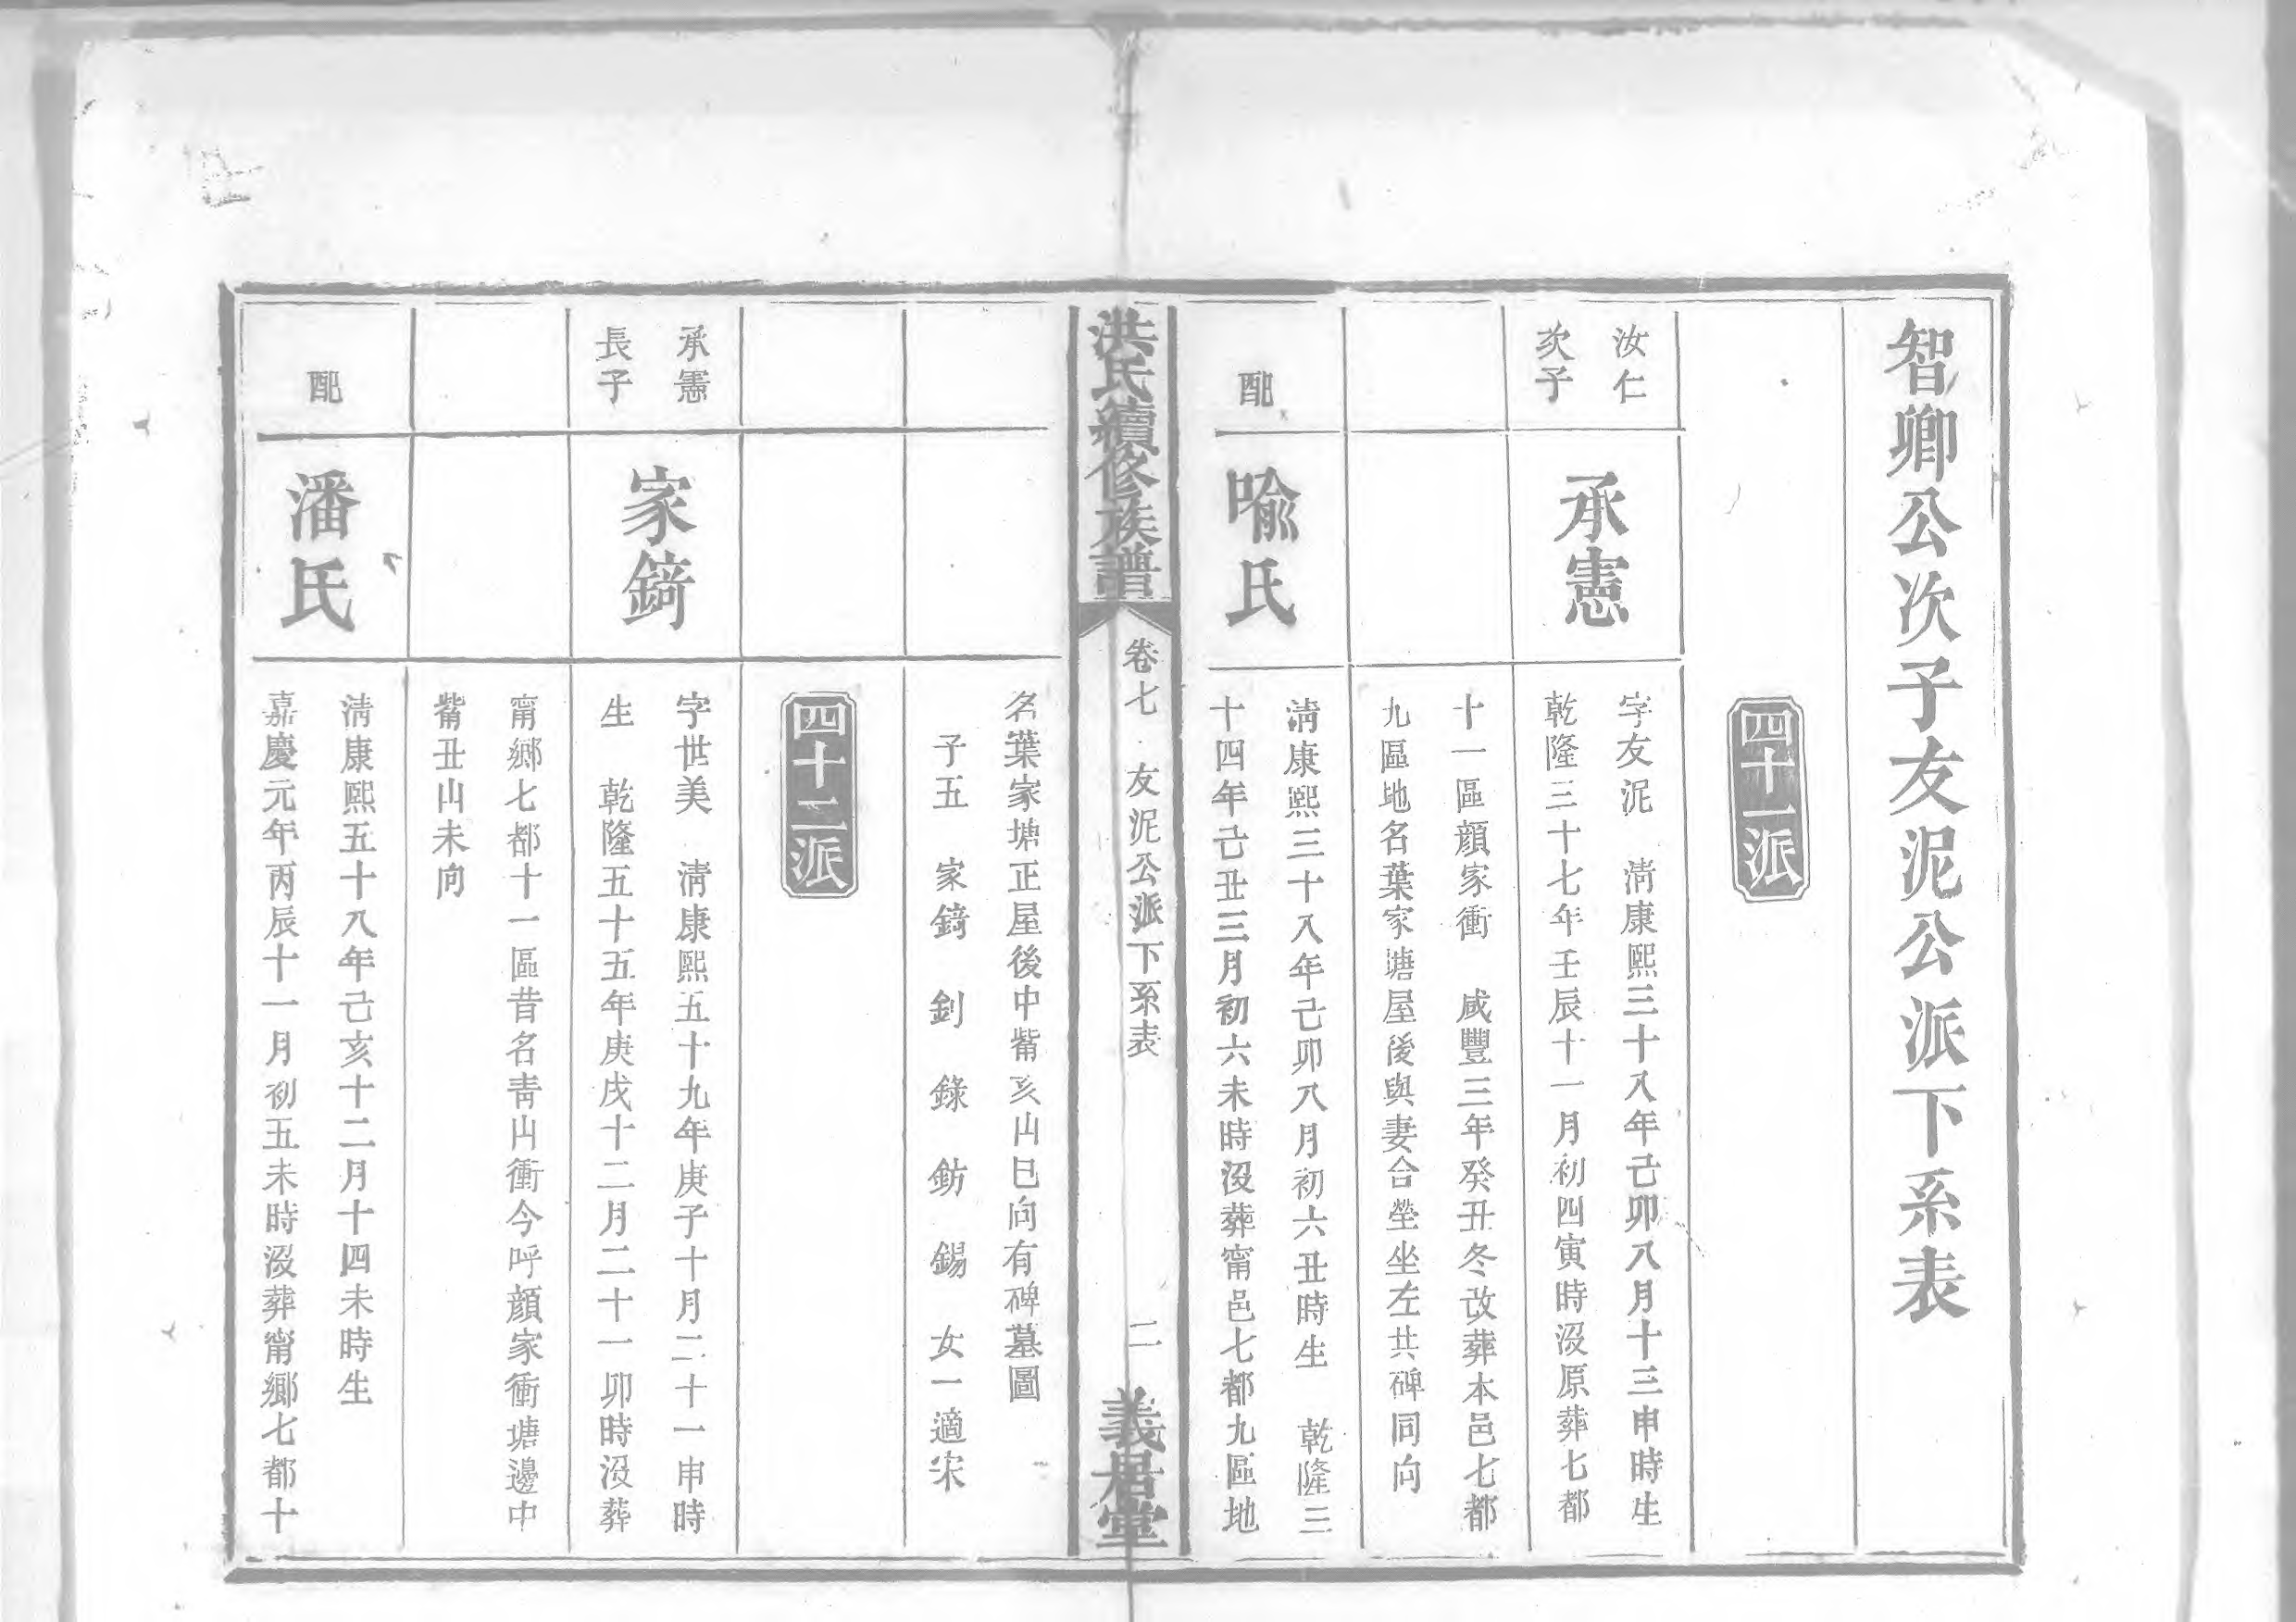 智卿公次子友泥公派下系表
四十一派
汝仁
次子
承憲
字友泥　清康熙三十八年己卯八月十三申時生
乾隆三十七年壬辰十一月初四寅時沒原葬七都
十一區顏家衝　咸豐三年癸丑冬改葬本邑七都
九區地名葉家塘屋後與妻合塋坐左共碑同向
配
喻氏
清康熙三十八年己卯八月初六丑時生　乾隆三
十四年己丑三月初六未時沒葬甯邑七都九區地
洪氏續修族譜
卷七　友泥公派下系表
二
義居堂
名葉家塘正屋後中觜亥山巳向有碑墓圖
子五　家錡　釗　錄　鈁　錫　女一適宋
四十二派
承憲
長子
家錡
字世美　清康熙五十九年庚子十月二十一申時
生　乾隆五十五年庚戌十二月二十一卯時沒葬
甯鄉七都十一區昔名青山衝今呼顏家衝塘邊中
觜丑山未向
配
潘氏
清康熙五十八年己亥十二月十四未時生
嘉慶元年丙辰十一月初五未時沒葬甯鄉七都十